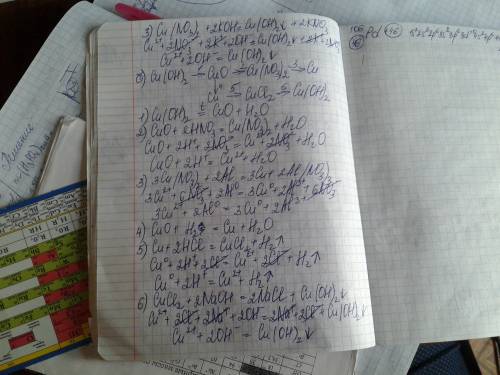 3) Cu(NO₃)₂ + 2KOH = Cu(OH)₂↓ + 2KNO₃
Cu²⁺ + 2NO₃⁻ + 2K⁺ + 2OH⁻ = Cu(OH)₂↓ + 2K⁺ + 2NO₃⁻
Cu²⁺ + 2OH⁻ = Cu(OH)₂↓
б) Cu(OH)₂ → CuO → Cu(NO₃)₂ → Cu
Cu → CuCl₂ → Cu(OH)₂
1) Cu(OH)₂ = CuO + H₂O
2) CuO + 2HNO₃ = Cu(NO₃)₂ + H₂O
CuO + 2H⁺ + 2NO₃⁻ = Cu²⁺ + 2NO₃⁻ + H₂O
CuO + 2H⁺ = Cu²⁺ + H₂O
3) 3Cu(NO₃)₂ + 2Al = 3Cu + 2Al(NO₃)₃
3Cu²⁺ + 6NO₃⁻ + 2Al⁰ = 3Cu⁰ + 2Al³⁺ + 6NO₃⁻
3Cu²⁺ + 2Al⁰ = 3Cu⁰ + 2Al³⁺
4) CuO + H₂ = Cu + H₂O
5) Cu + 2HCl = CuCl₂ + H₂↑
Cu⁰ + 2H⁺ + 2Cl⁻ = Cu²⁺ + 2Cl⁻ + H₂↑
Cu⁰ + 2H⁺ = Cu²⁺ + H₂↑
6) CuCl₂ + 2NaOH = 2NaCl + Cu(OH)₂↓
Cu²⁺ + 2Cl⁻ + 2Na⁺ + 2OH⁻ = 2Na⁺ + 2Cl⁻ + Cu(OH)₂↓
Cu²⁺ + 2OH⁻ = Cu(OH)₂↓
106 Pd +46
46